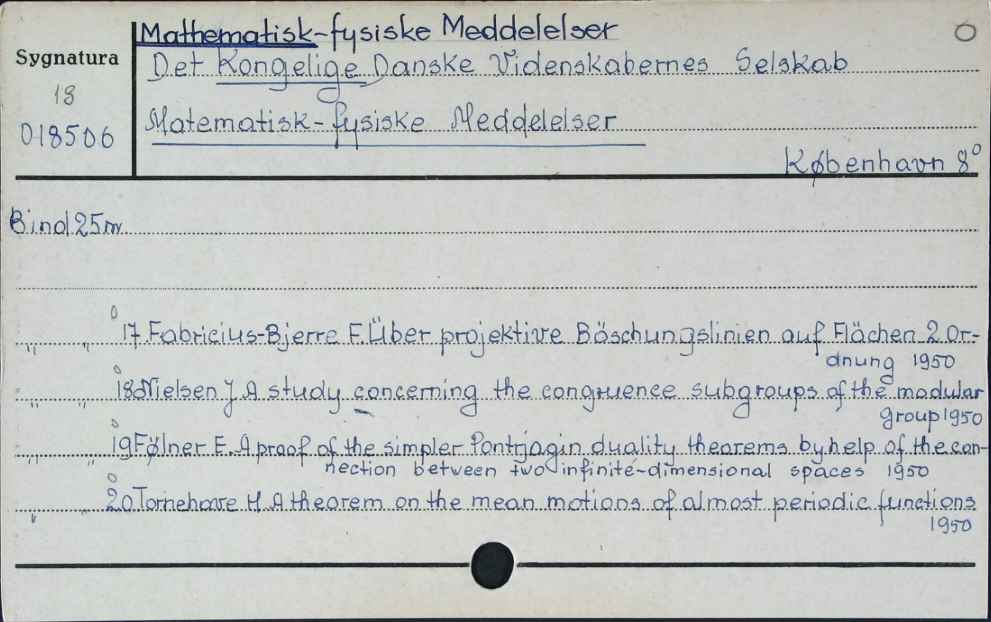 Mathematisk-fysiske Meddelelser
O
Sygnatura
18
018506
Det Kongelige Danske Videnskabernes Selskab
Matematisk-fysiske Meddelelser
København 8°
Bind 25 nr.
„ „ 17 Fabricius-Bjerre F. Über projektive Böschungslinien auf Flächen 2 Or-
dnung 1950
„ „ 18 Nielsen J. A study concerning the congruence subgroups of the modular
group 1950
„ „ 19 Følner E. A proof of the simpler Pontrjagin duality theorems by help of the con-
nection between two infinite-dimensional spaces 1950
„ „ 20 Tornehave H. A theorem on the mean motions of almost periodic functions
1950